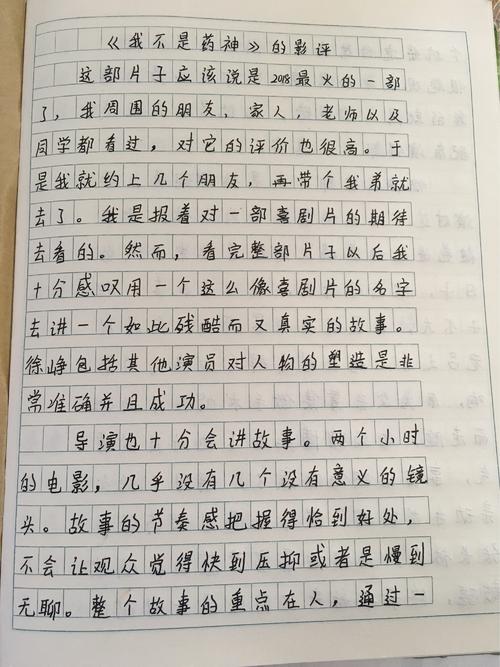 《我不是药神》的影评
这部片子应该说是2018最火的一部
了，我周围的朋友，家人，老师以及
同学都看过，对它的评价也很高。于
是我就约上几个朋友，再带个我弟就
去了。我是报着对一部喜剧片的期待
去看的。然而，看完整部片子以后我
十分感叹用一个这么像喜剧片的名字
去讲一个如此残酷而又真实的故事。
徐峥包括其他演员对人物的塑造是非
常准确并且成功。
导演也十分会讲故事。两个小时
的电影，几乎没有几个没有意义的镜
头。故事的节奏感把握得恰到好处，
不会让观众觉得快到压抑或者是慢到
无聊。整个故事的重点在人，通过一